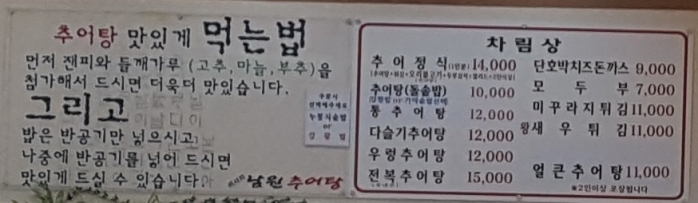 추어탕 맛있게 먹는법
먼저 잰피와 들깨가루 (고추,마늘,부추)을
첨가해서 드시면 더욱더 맛있습니다.
그리고
밥은 반공기만 넣으시고
나중에 반공기를 넣어 드시면
맛있게 드실 수 있습니다.
남원추어탕
주문시
선택해주세요
누룽지솥밥
or
강황밥
차림상
추어정식(1인분) 14,000
추어탕(돌솥밥) 10,000
통추어탕 12,000
다슬기추어탕 12,000
우렁추어탕 12,000
전복추어탕 15,000
단호박치즈돈까스 9,000
모두부 7,000
미꾸라지튀김 11,000
왕새우튀김 11,000
얼큰추어탕 11,000
※2인이상 포장됩니다